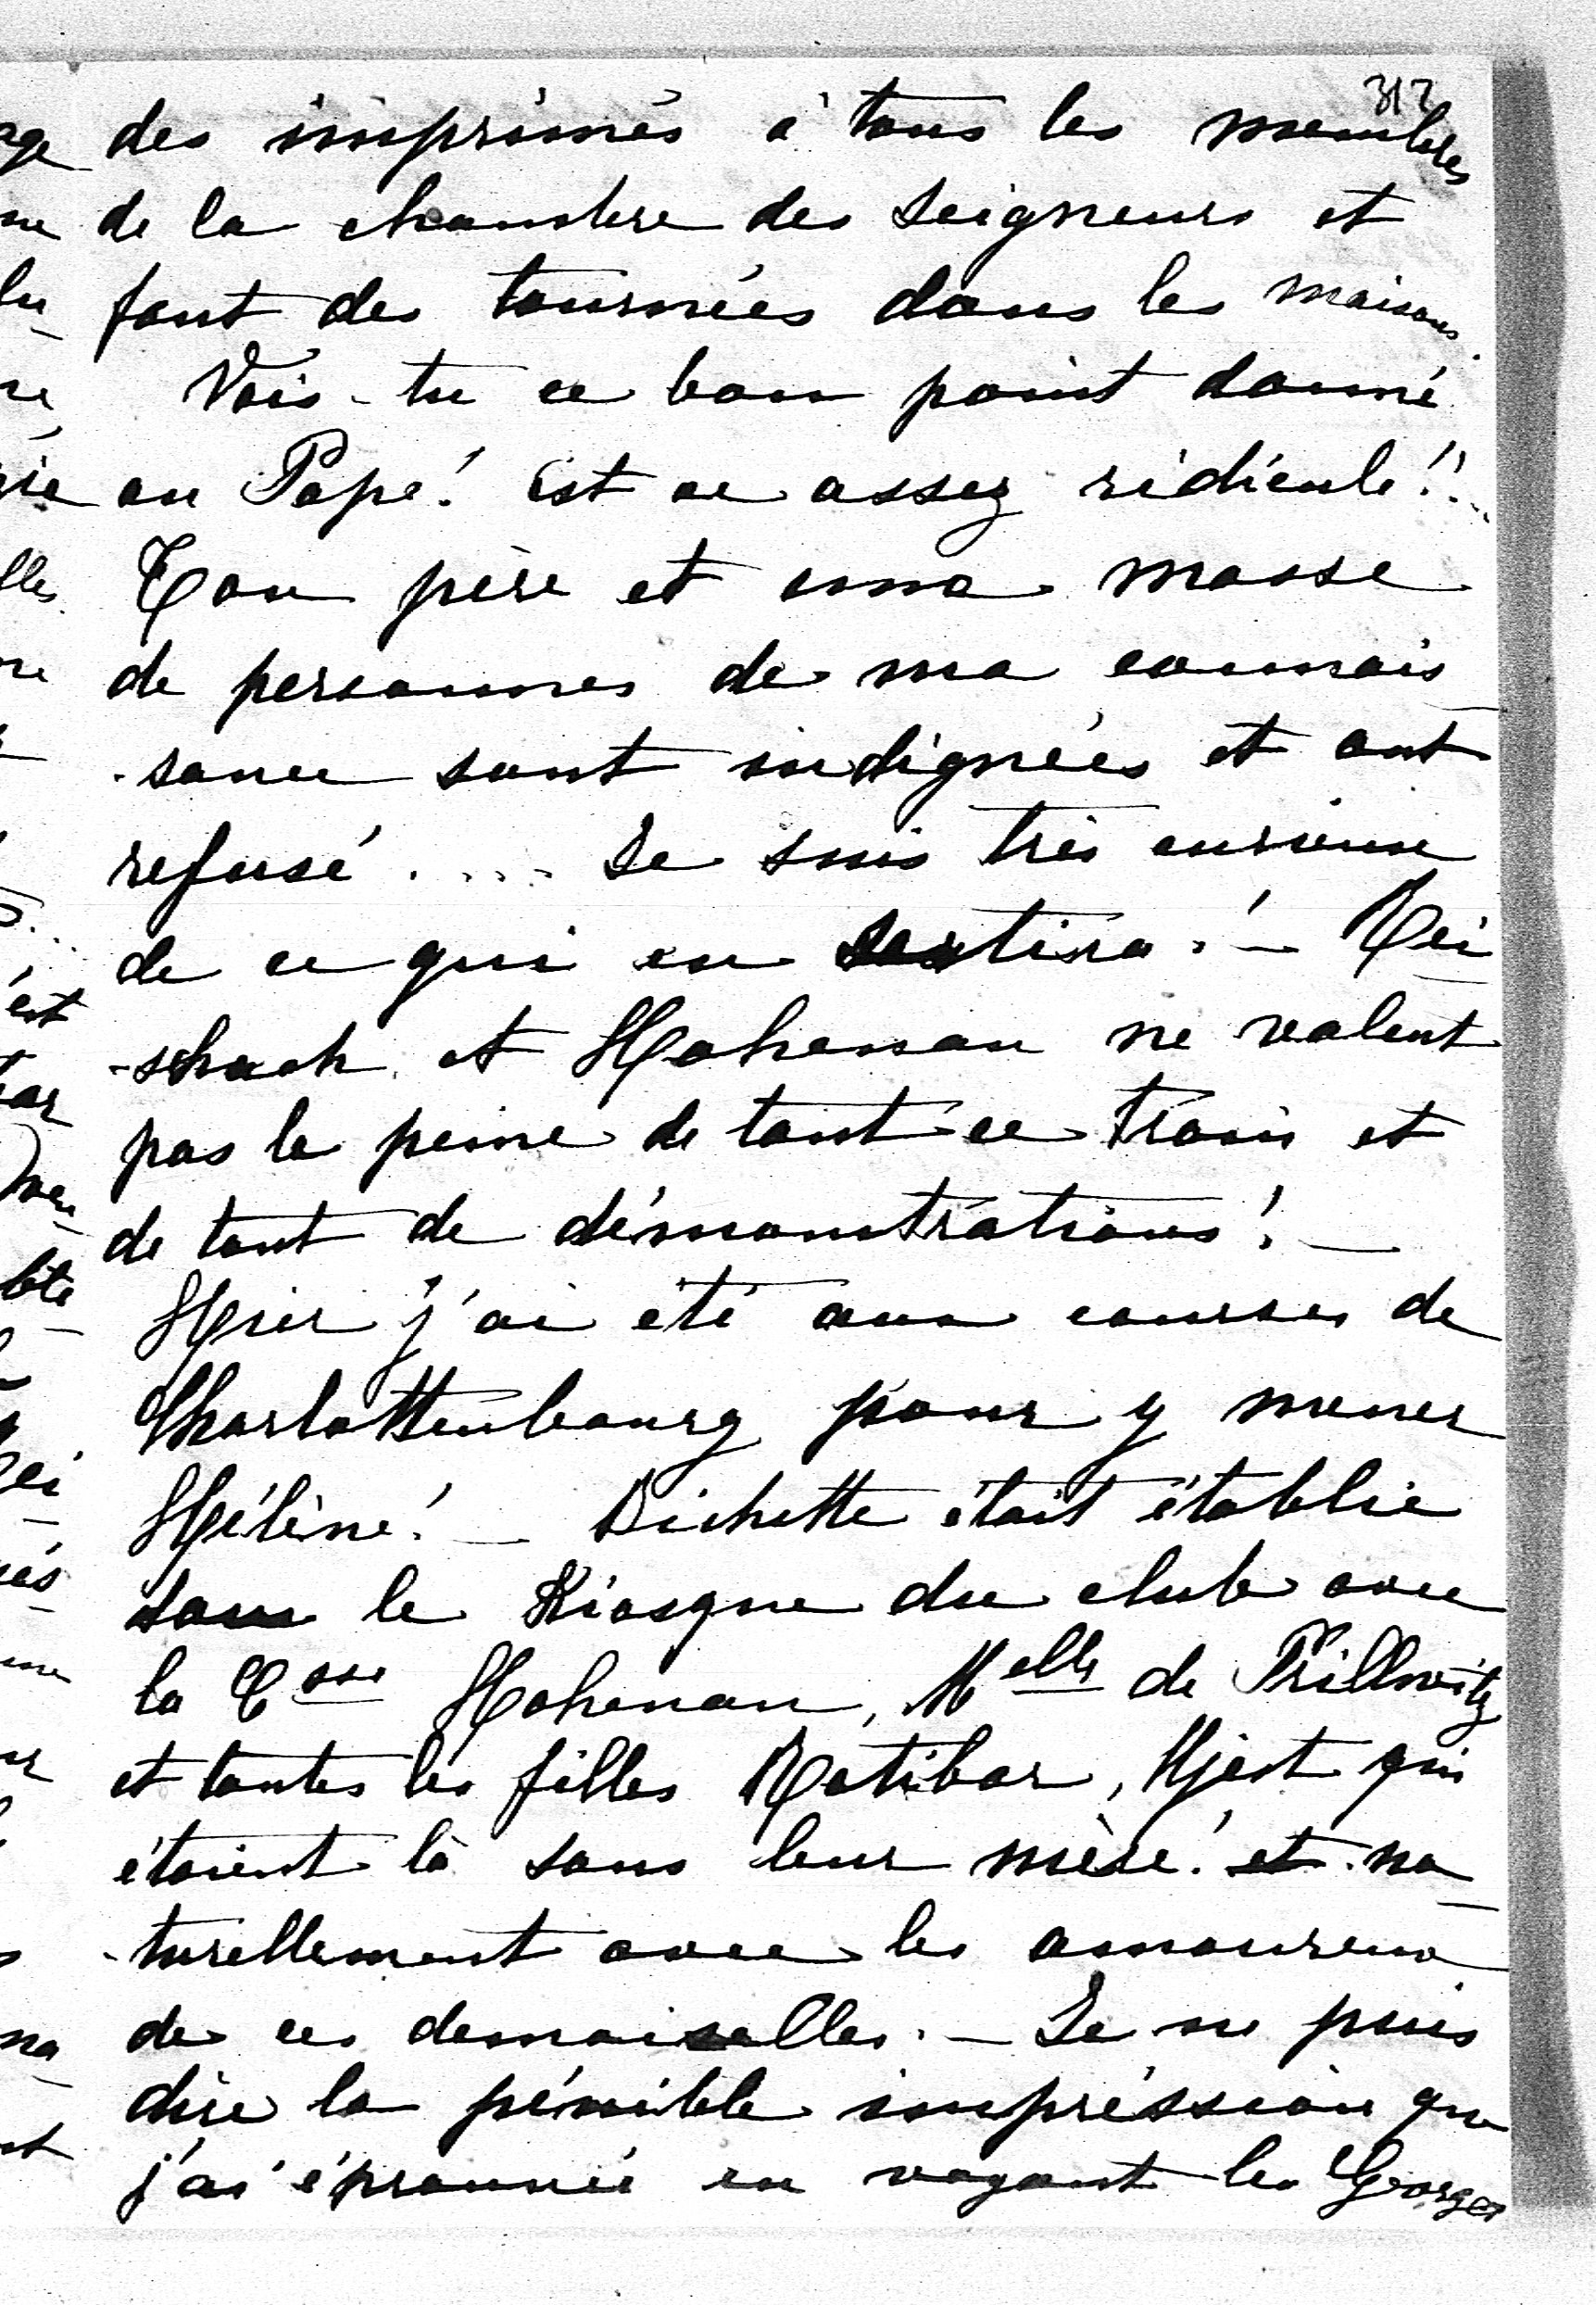 312
des imprimés à tous les membres
de la chambre des Seigneurs et
font des tournées dans les maisons.
Vois-tu ce bon point donné
au Pape! Est ce assez ridicule!!...
Ton père et une masse
de personnes de ma connais
-sance sont indignées et ont
refusé .... Je suis très curieuse
de ce qui en sortira! — Rei
-schach et Hohenau ne valent
pas la peine de tout ce train et
de tant de démonstrations! —
Hier j'ai été aux courses de
Charlottenbourg pour y mener
Hélène! — Bichette était établie
sous le Kiosque du club avec
la Csse Hohenau, Melle de Prillwitz
et toutes les filles Ratibor, Ujest qui
étaient là sans leur mère! et na
-turellement avec les amoureux
de ces demoiselles. — Je ne puis
dire la pénible impréssion que
j'ai éprouvée en voyant les Georges